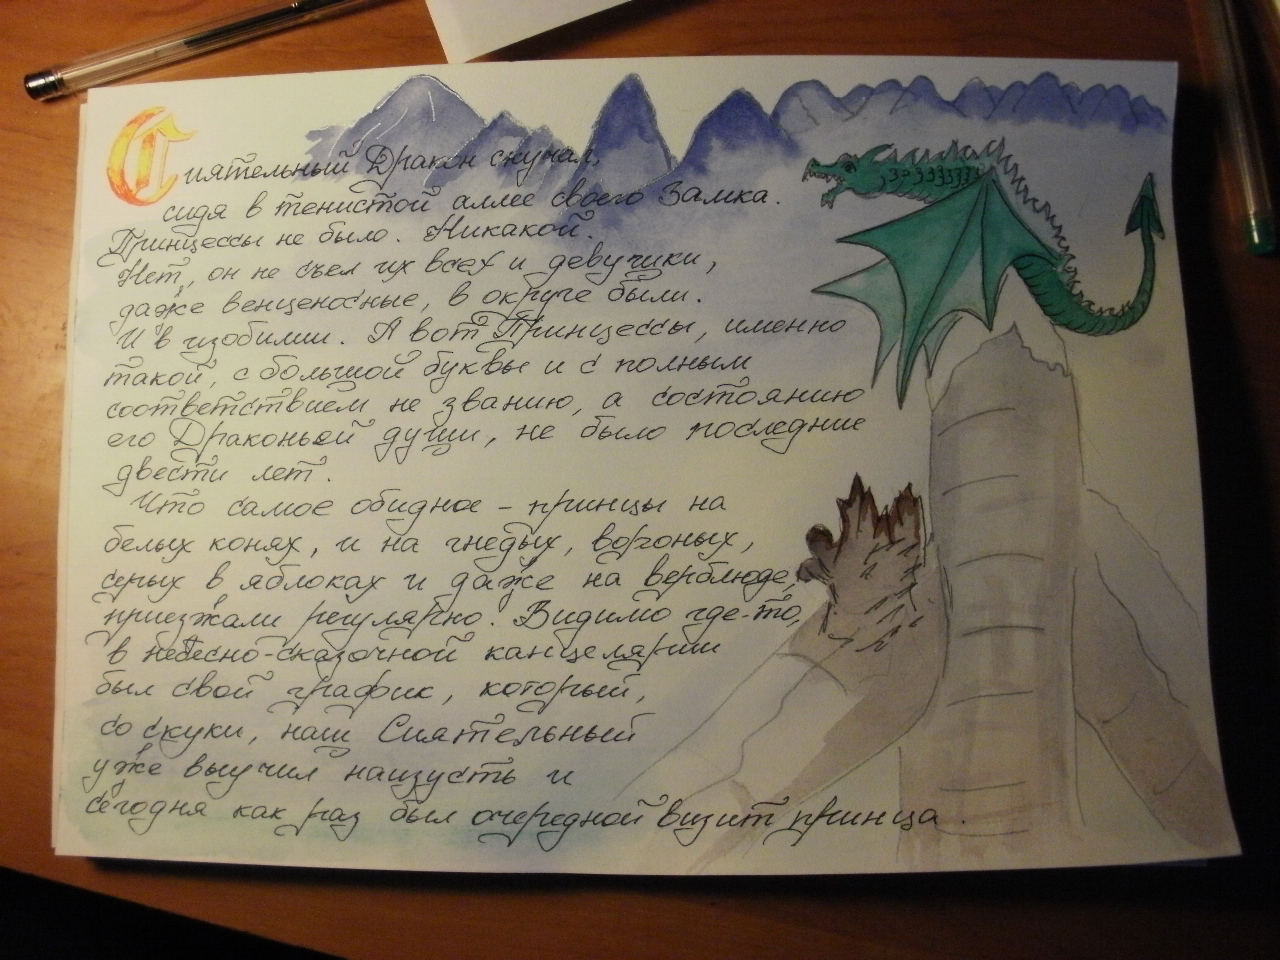 Сиятельный Дракон скучал,
сидя в тенистой аллее своего Замка.
Принцессы не было. Никакой.
Нет, он не съел их всех и девушки,
даже венценосные, в округе были.
И в изобилии. А вот Принцессы, именно
такой, с большой буквы и с полным
соответствием не званию, а состоянию
его Драконьей души, не было последние
двести лет.
Что самое обидное - принцы на
белых конях, и на гнедых, вороных,
серых в яблоках и даже на верблюде,
приезжали регулярно. Видимо где-то,
в небесно-сказочной канцелярии
был свой график, который,
со скуки, наш Сиятельный
уже выучил наизусть и
сегодня как раз был очередной визит принца.